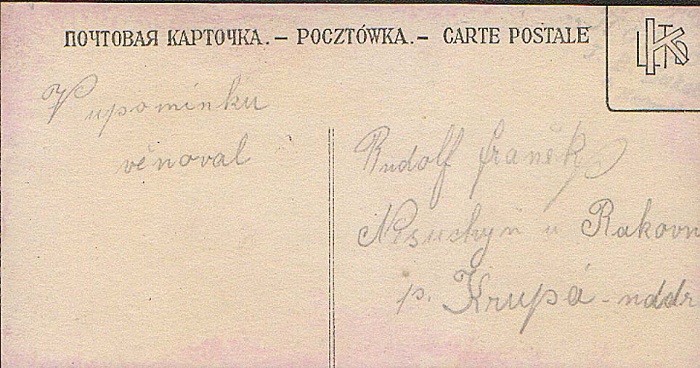 ПОЧТОВАЯ КАРТОЧКА. – POCZTÓWKA. – CARTE POSTALE
V upomínku
věnoval
Rudolf Franěk
Nesuchyň u Rakovn
p. Krupá - nddr